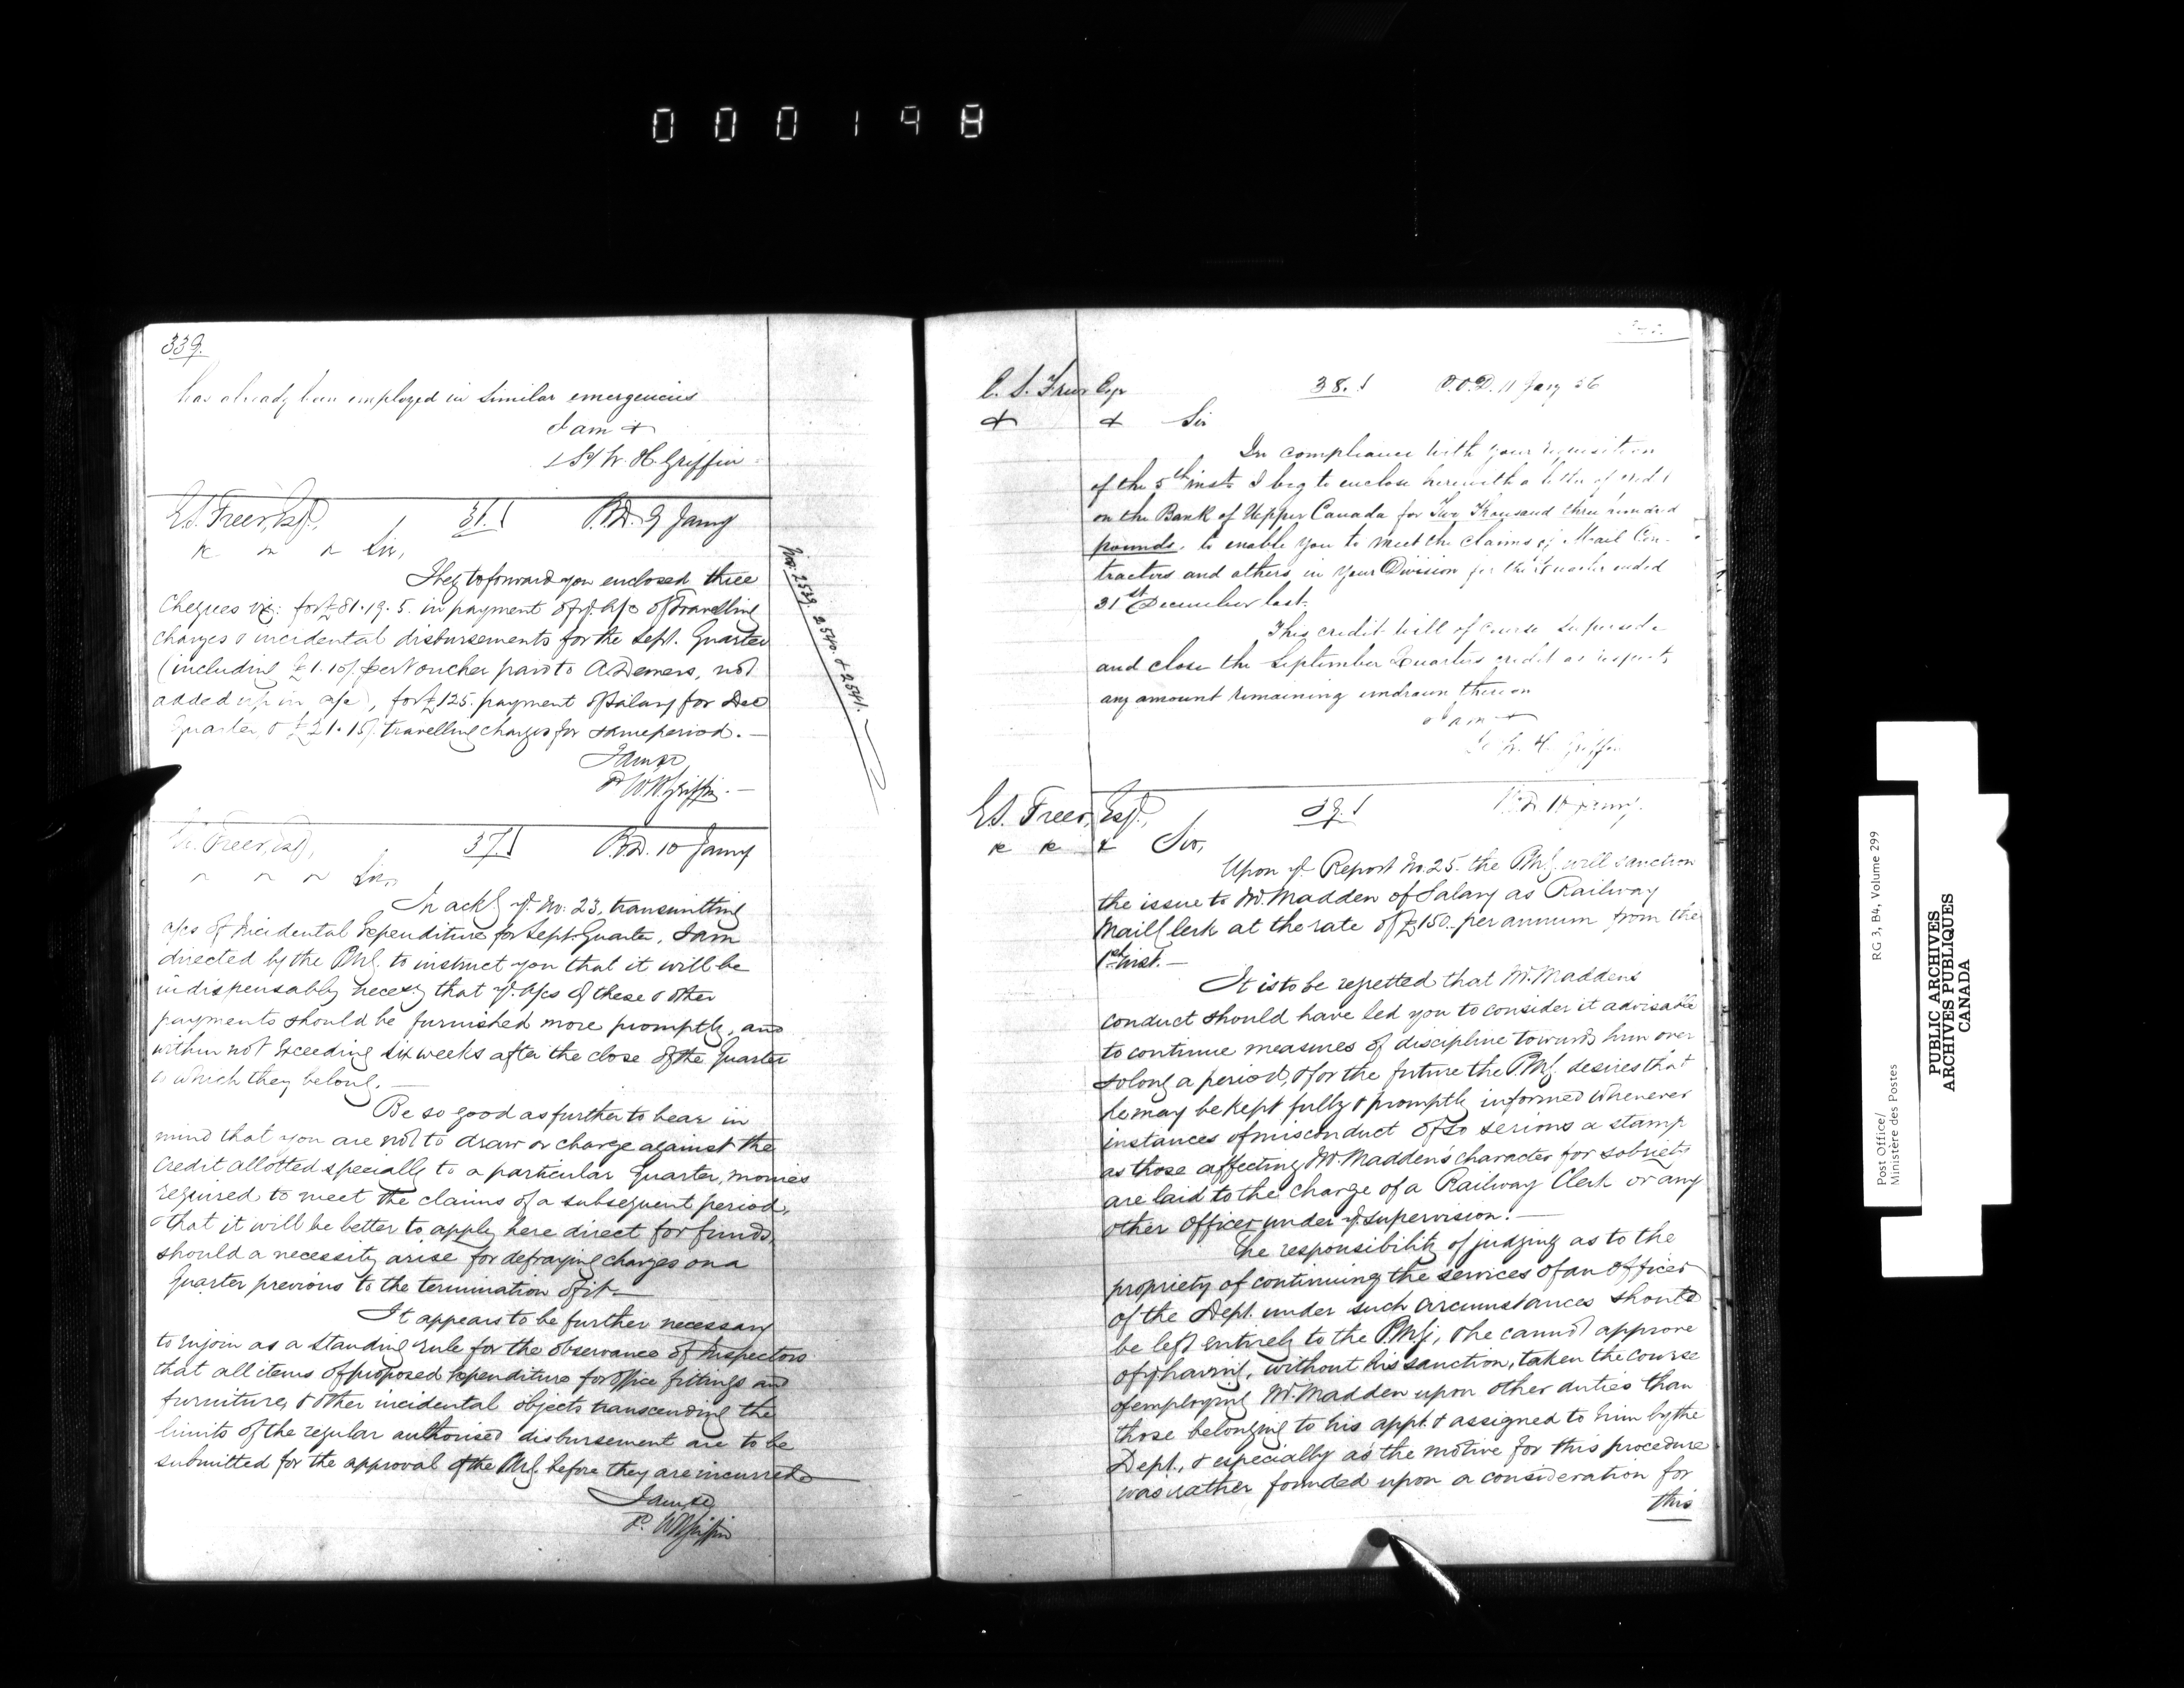 000198
339.
has already been employed in similar emergencies
I am &
W. H. Griffin
E.S. Freer, Esq., 31. P.O.D. 9 Jany
Sir,
I beg to forward you enclosed three
Cheques viz: for £81.19.5. in payment of yr. a/c of Travelling
charges & incidental disbursements for the Sept. Quarter
(including £1.10/. per Voucher paid to A. Demers, not
added up in a/c), for £125. payment of Salary for Dec
Quarter, & £21.15/. travelling charges for same period. —
I am &c
W H Griffin. —
Nos. 2539. 2540. & 2541.
Freer, Esq., 37. P.O.D. 10 Jany
Sir,
In ackg. yr. No. 23, transmitting
a/cs of Incidental Expenditure for Sept. Quarter, I am
directed by the P.M.G. to instruct you that it will be
indispensably necesy. that yr. a/cs of these & other
payments should be furnished more promptly, and
within not exceeding six weeks after the close of the Quarter
to which they belong. —
Be so good as further to bear in
mind that you are not to draw or charge against the
Credit allotted specially to a particular Quarter, monies
required to meet the claims of a subsequent period,
& that it will be better to apply here direct for funds,
should a necessity arise for defraying charges on a
Quarter previous to the termination of it —
It appears to be further necessary
to enjoin as a standing rule for the observance of Inspectors
that all items of proposed expenditure for Office fittings and
furniture, & other incidental objects transcending the
limits of the regular authorised disbursement are to be
submitted for the approval of the P.M.G. before they are incurred —
I am &c
W H Griffin
E. S. Freer Esqr 38. P.O.D. 11 Jany 56
& & Sir
In compliance with your requisition
of the 5th inst. I beg to enclose herewith a letter of credit
on the Bank of Upper Canada for Two Thousand three hundred
pounds, to enable you to meet the claims of Mail Con-
tractors and others in your Division for the Quarter ended
31st December last.
This credit will of course supersede
and close the September Quarters credit as respects
any amount remaining undrawn thereon
I am &
W. H. Griffin
E.S. Freer, Esq., 39. P.O.D. Jany.
& Sir,
Upon yr. Report No. 25. the P.M.G. will sanction
the issue to Mr. Madden of Salary as Railway
Mail Clerk at the rate of £150. per annum from the
1st inst. —
It is to be regretted that Mr. Maddens
conduct should have led you to consider it advisable
to continue measures of discipline towards him over
so long a period, & for the future the P.M.G. desires that
he may be kept fully & promptly informed whenever
instances of misconduct of so serious a stamp
as those affecting Mr. Madden's character for sobriety
are laid to the charge of a Railway Clerk or any
other Officer under yr. supervision. —
The responsibility of judging as to the
propriety of continuing the services of an Officer
of the Dept. under such circumstances should
be left entirely to the P.M.G., & he cannot approve
of yr having, without his sanction, taken the course
of employing Mr. Madden upon other duties than
those belonging to his appt. & assigned to him by the
Dept., & especially as the motive for this procedure
was rather founded upon a consideration for
this
Post Office/
Ministère des Postes
RG 3, B4, Volume 299
PUBLIC ARCHIVES
ARCHIVES PUBLIQUES
CANADA